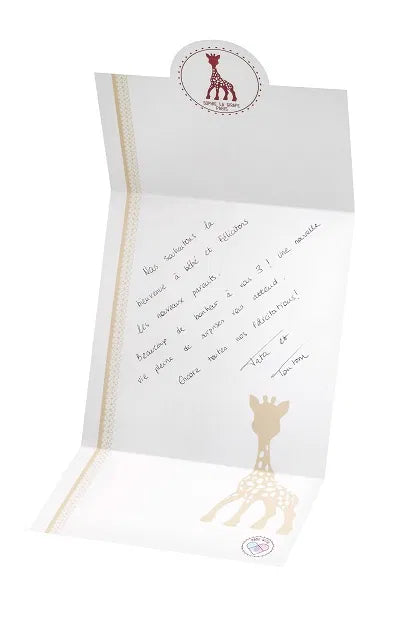 SOPHIE LA GIRAFE
PARIS
Nous souhaitons la
bienvenue à bébé et félicitons
les nouveaux parents.
Beaucoup de bonheur à vous 3 ! Une nouvelle
vie pleine de surprises vous attend.
Encore toutes nos félicitations!
et
Tonton